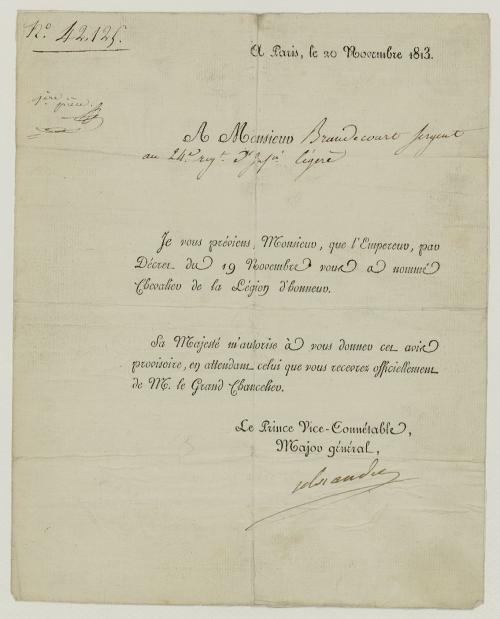 N.º 42,125.
A Paris, le 20 Novembre 1813.
1ère pièce.
A Monsieur Brandecourt Sergent
au 24.e reg.t d'Inf.ie légere
Je vous préviens, Monsieur, que l'Empereur, par
Décret du 19 Novembre vous a nommé
Chevalier de la Légion d'honneur.
Sa Majesté m'autorise à vous donner cet avis
provisoire, en attendant celui que vous recevrez officiellement
de M. le Grand Chancelier.
Le Prince Vice-Connétable,
Major général,
Alexandre